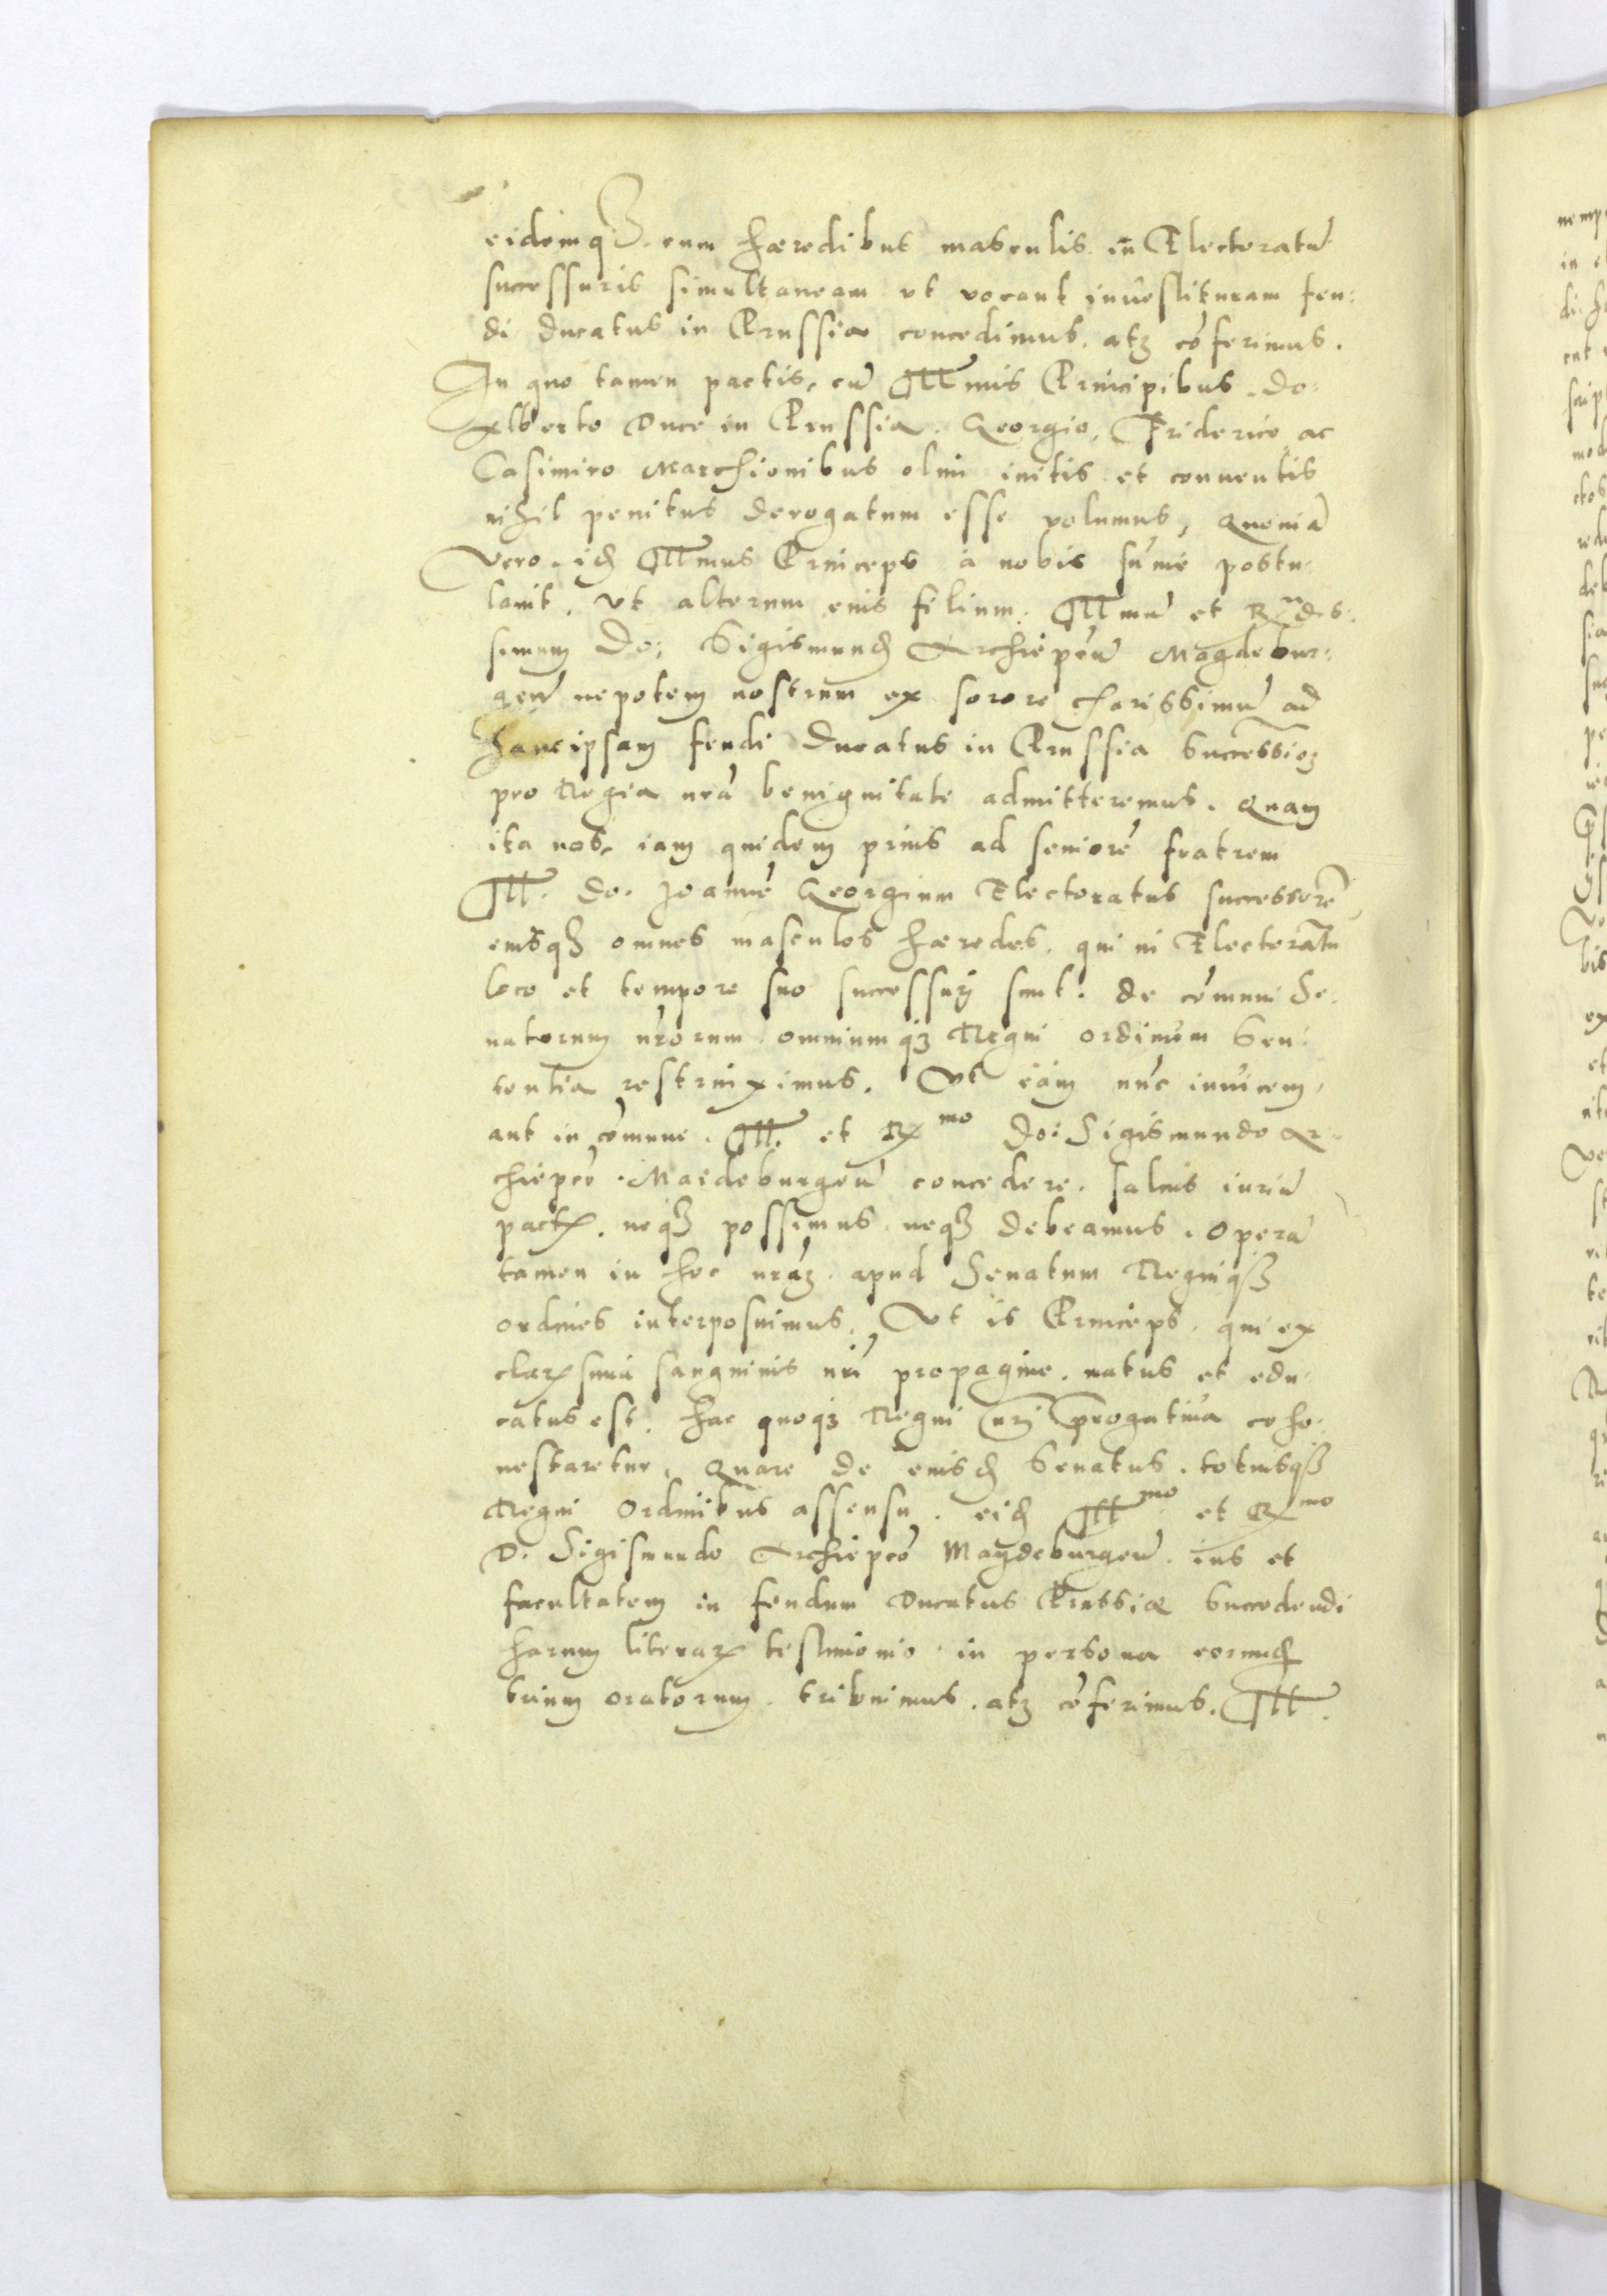 eidemq₃ cum hæredibus masculis in Electoratū
successuris simultaneam ut vocant investituram feu:
di ducatus in Prussia concedimus. atq₃ cōferimus.
In quo tamen pactis, cū Illmis Principibus. do:
Alberto Duce in Prussia. Georgio, Friderico ac
Casimiro Marchionibus olim initis et conventis
nihil penitus derogatum esse volumus, Quoniā
vero. idē Illmus Princeps a nobis sūme postu:
lavit. Ut alterum eius filium. Illmū et Rndis:
simum Do: Sigismundū Archiepcū Magdebur:
gen̄ nepotem nostrum ex sorore charissimū ad
hanc ipsam feudi Ducatus in Prussia Successioē
pro Regia nrā benignitate admitteremus. Quam
ita nos, iam quidem prius ad seniorē fratrem
Ill. do. Joannē Georgium Electoratus successorē
eiusq₃ omnes masculos hæredes. qui in Electoratu
loco et tempore suo successuri sunt. de cōmuni Se:
natorum nrorum omniumq₃ Regni ordinum Sen:
tentia restrinximus. Ut eām nūc invicem,
aut in cōmune. Ill. et Rmo do: Sigismundo Ar:
chiepcō Maideburgen̄ concedere. salvis iuriū
pactꝝ. neq₃ possimus neq₃ debeamus. Operā
tamen in hoc nrāꝫ apud Senatum Regniq₃
ordines interposuimus. Ut is Princeps. qui ex
clarꝭsima sanguinis nrī propagine. natus et edu:
catus est. hac quoq₃ Regni nrī prerogativa coho:
nestaretur. Quare de eiusdē Senatus. totiusq₃
Regni Ordinibus assensu. eidē Illmo et Rmo
D. Sigismundo Archiepcō Magdeburgen̄. ius et
facultatem in feudum Ducatus Prussiæ Succedendi
harum literaꝝ testimonio in persona eorundē
trium oratorum. tribuimus. atq₃ cōferimus. Ill.